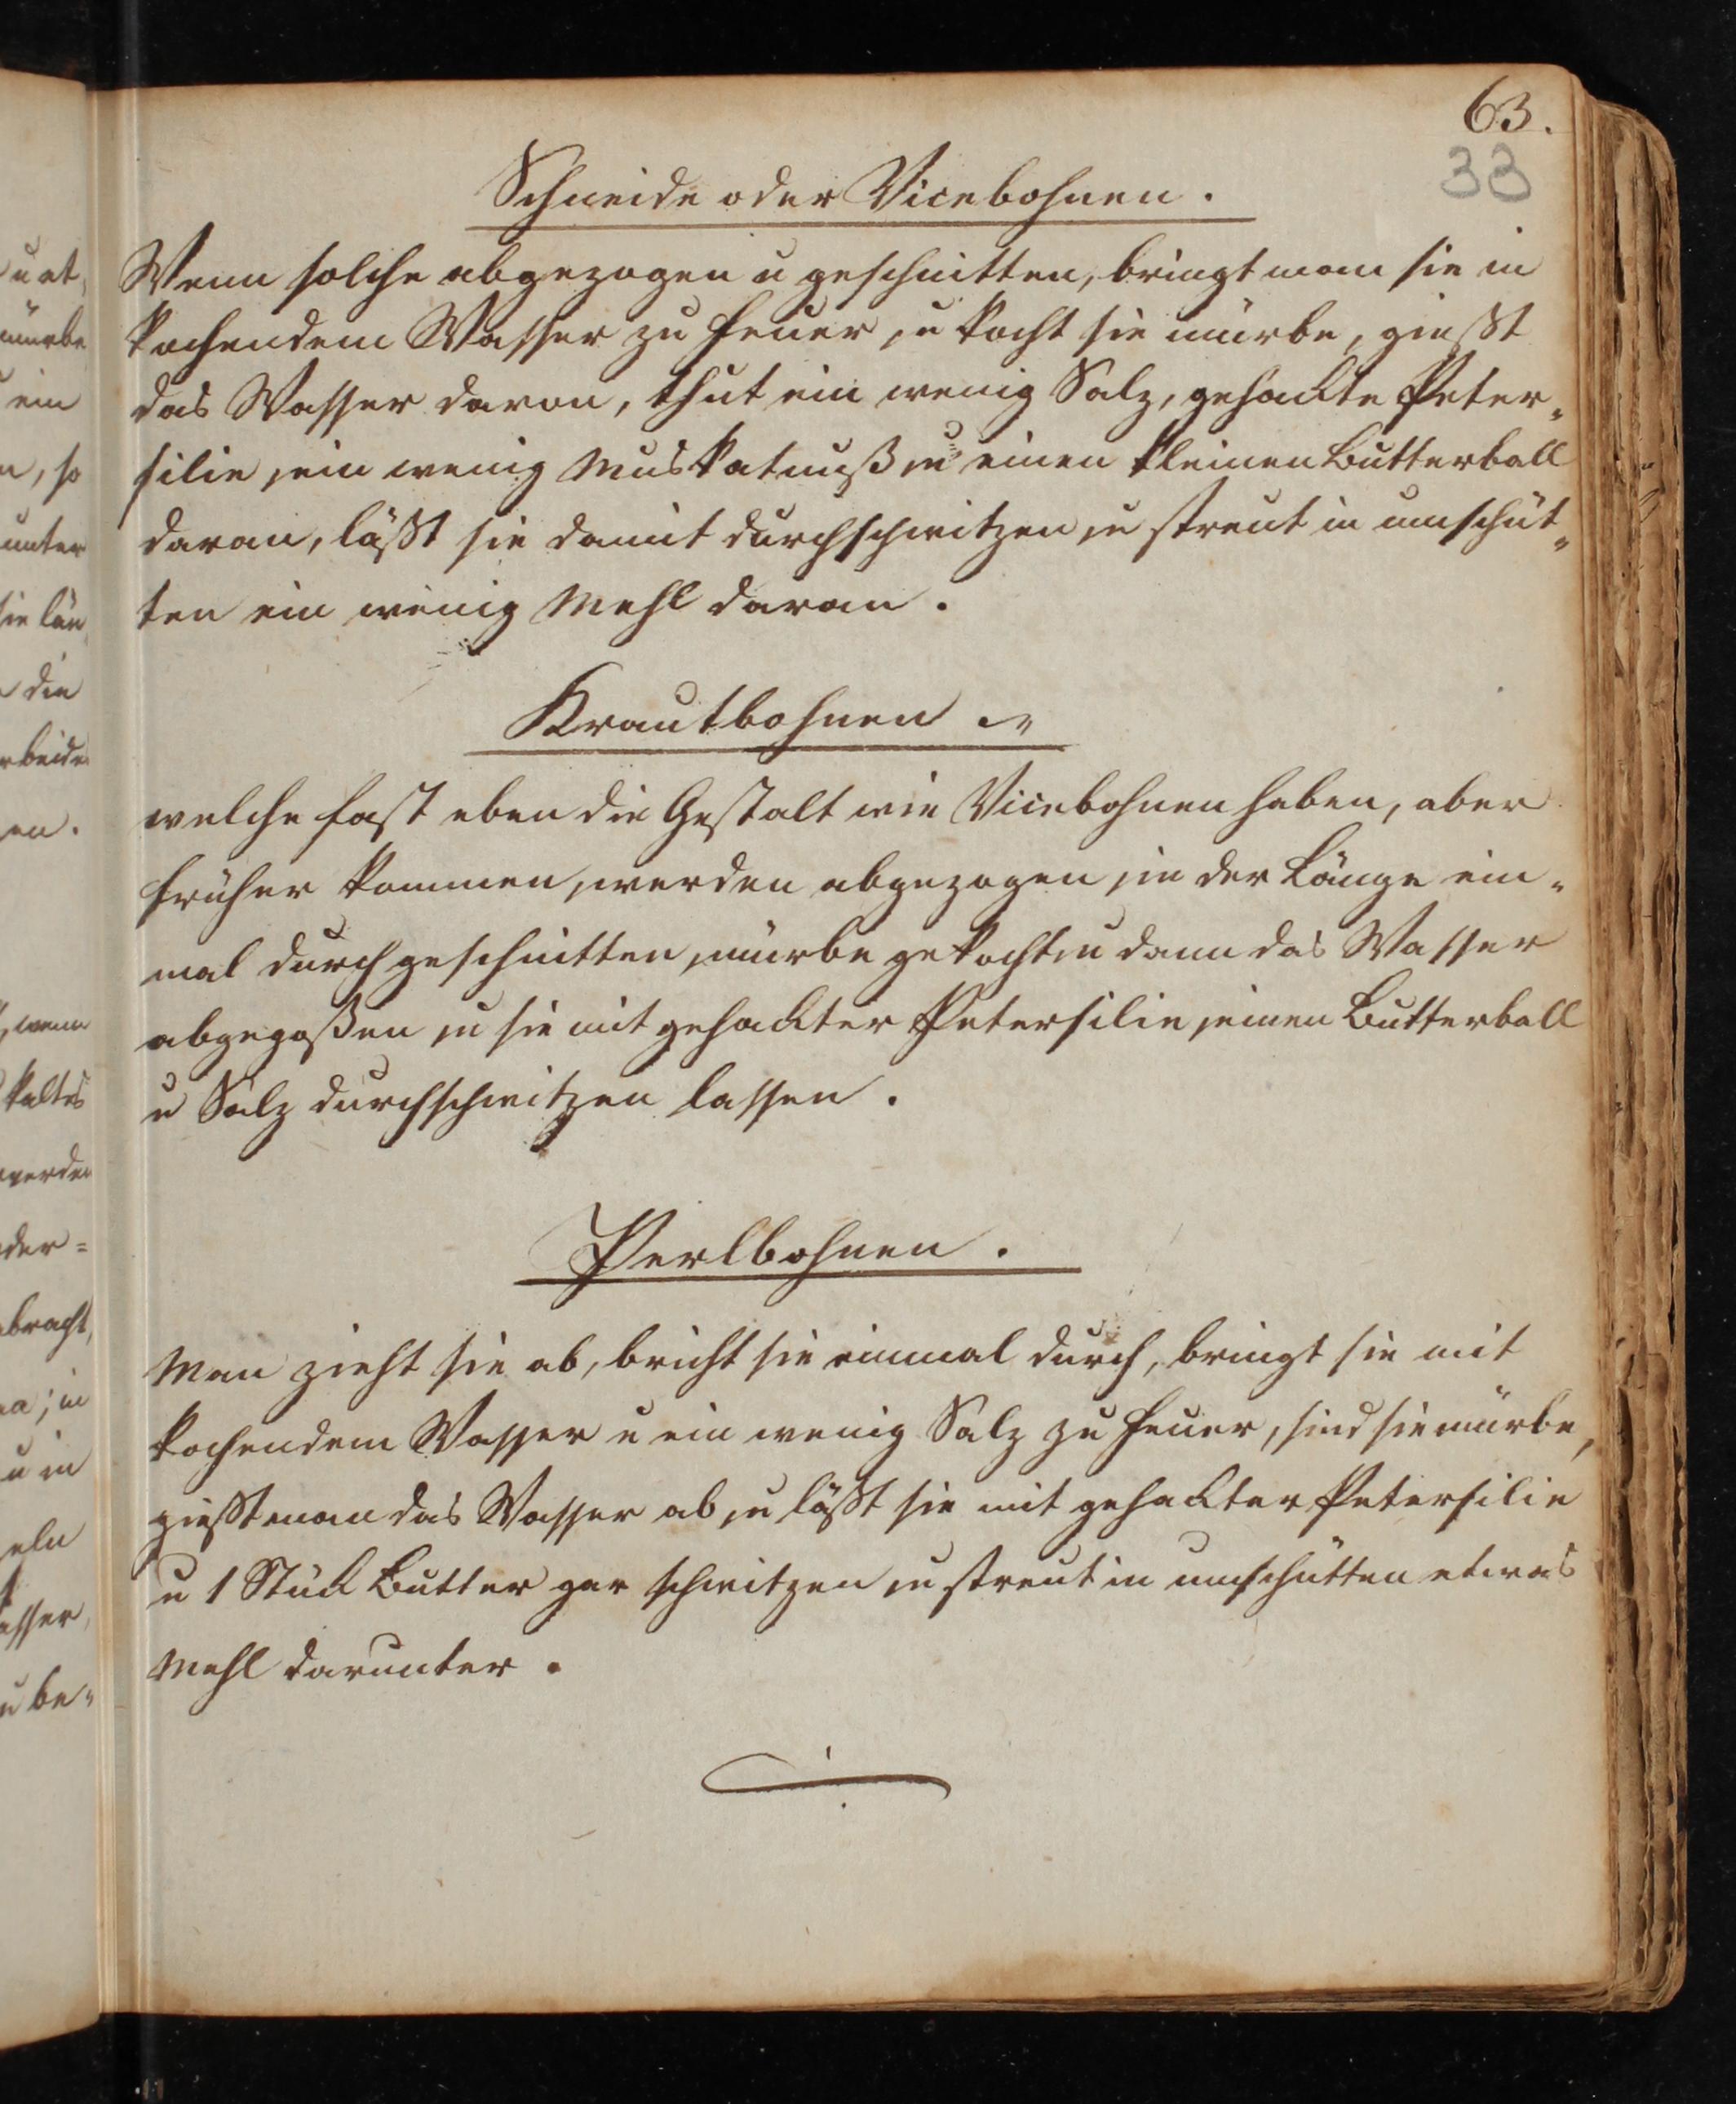 63.
33
Schneide oder Vicebohnen.
Wenn solche abgezogen u geschnitten, bringt man sie in
kochendem Wasser zu Feuer, u kocht sie mürbe, gießt
das Wasser davon, thut ein wenig Salz, gehackte Peter„
silie, ein wenig Muskatnuß, u einen kleinen Butterball
daran, läßt sie damit durchschwitzen, u streut in umschüt„
ten ein wenig Mehl daran.
Krautbohnen.„
welche fast eben die Gestalt wie Vicebohnen haben, aber
früher kommen, werden abgezogen, in der Länge ein„
mal durchgeschnitten, mürbe gekocht, u dann das Wasser
abgegoßen, u sie mit gehackter Petersilie, einen Butterball
u Salz durchschwitzen lassen.
Perlbohnen.
Man zieht sie ab, bricht sie einmal durch, bringt sie mit
kochendem Wasser u ein wenig Salz zu Feuer, sind sie mürbe,
gießt man das Wasser ab, u läßt sie mit gehackter Petersilie
u 1 Stück Butter gar schwitzen, u streut in umschütten etwas
Mehl darunter.